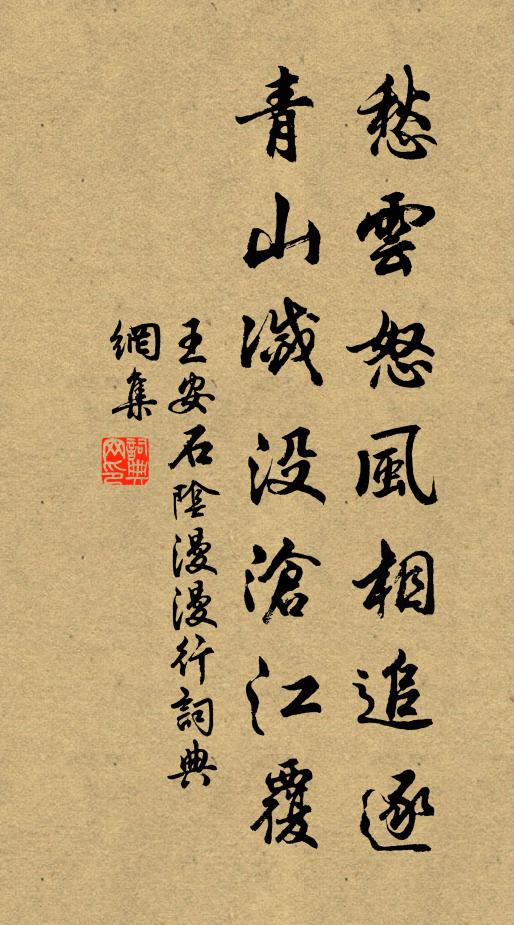 愁雲怒風相追逐
青山滅没滄江覆
王安石陰漫漫行詞典
網集
詞典網印